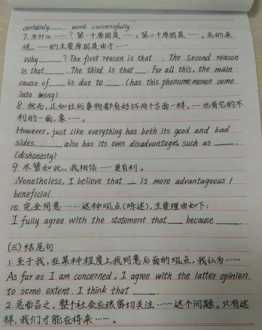 certainly____ word successfully
7. 为什么……? 第一个原因是……, 第二个原因是……, 总的来
说, ……的主要原因是由于……
Why____? The first reason is that ____. The second reason
is that____. The third is that ____. For all this, the main
cause of____ is due to ____. (has this phenomenon come
into being)
8. 然而, 正如任何事物都有好坏两个方面一样, ……也有它的不
利的一面, 象……。
However, just like everything has both its good and bad
sides, ____ also has its own disadvantages, such as ____.
(dishonesty)
9. 尽管如此, 我相信……更有利。
Nonetheless, I believe that ____ is more advantageous /
beneficial
10. 完全同意……这种观点(陈述), 主要理由如下:
I fully agree with the statement that____ because ____.
(三) 结尾句
1. 至于我, 在某种程度上我同意后面的观点, 我认为……
As far as I am concerned, I agree with the latter opinion
to some extent. I think that ____.
2. 总而言之, 整个社会应该密切关注……这个问题。只有这
样, 我们才能在将来……。